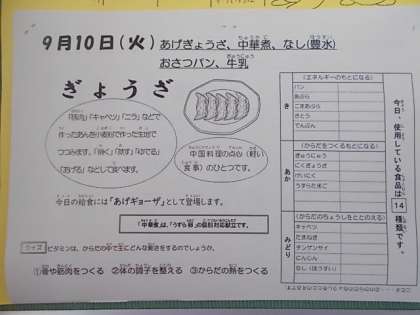 9月10日(火) あげぎょうざ、中華煮、なし(豊水)
おさつパン、牛乳
ぎょうざ
「豚肉」「キャベツ」「ニラ」などで
作ったあんを小麦粉で作った生地で
つつみます。「焼く」「蒸す」「ゆでる」
「あげる」などして食べます。
中国料理の点心(軽い
食事)のひとつです。
今日の給食には「あげギョーザ」として登場します。
「中華煮」は、「うずら卵」の個別対応献立です。
クイズ ビタミンは、からだの中で主にどんな働きをするのでしょうか。
①骨や筋肉をつくる ②体の調子を整える ③からだの熱をつくる
今日、使用している食品は14種類です。
き
(エネルギーのもとになる)
パン
あぶら
ごまあぶら
さとう
でんぷん
あか
(からだをつくるもとになる)
ぎゅうにゅう
にくぎょうざ
けいにく
うずらたまご
みどり
(からだのちょうしをととのえる)
キャベツ
たまねぎ
チンゲンサイ
にんじん
なし(ほうすい)